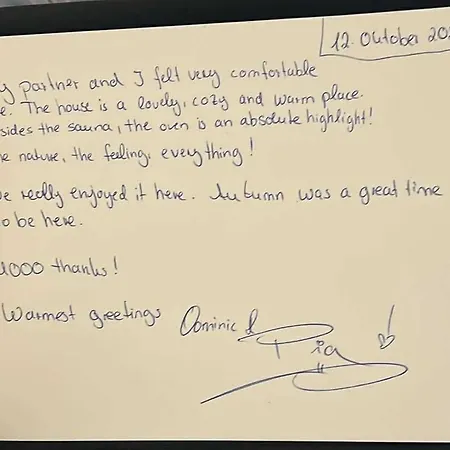 12. October 202
y partner and I felt very comfortable
e. The house is a lovely, cozy and warm place.
sides the sauna, the oven is an absolute highlight!
e nature, the feeling, everything!
ve really enjoyed it here. Autumn was a great time
o be here.
1000 thanks!
Warmest greetings Dominic &
Pia